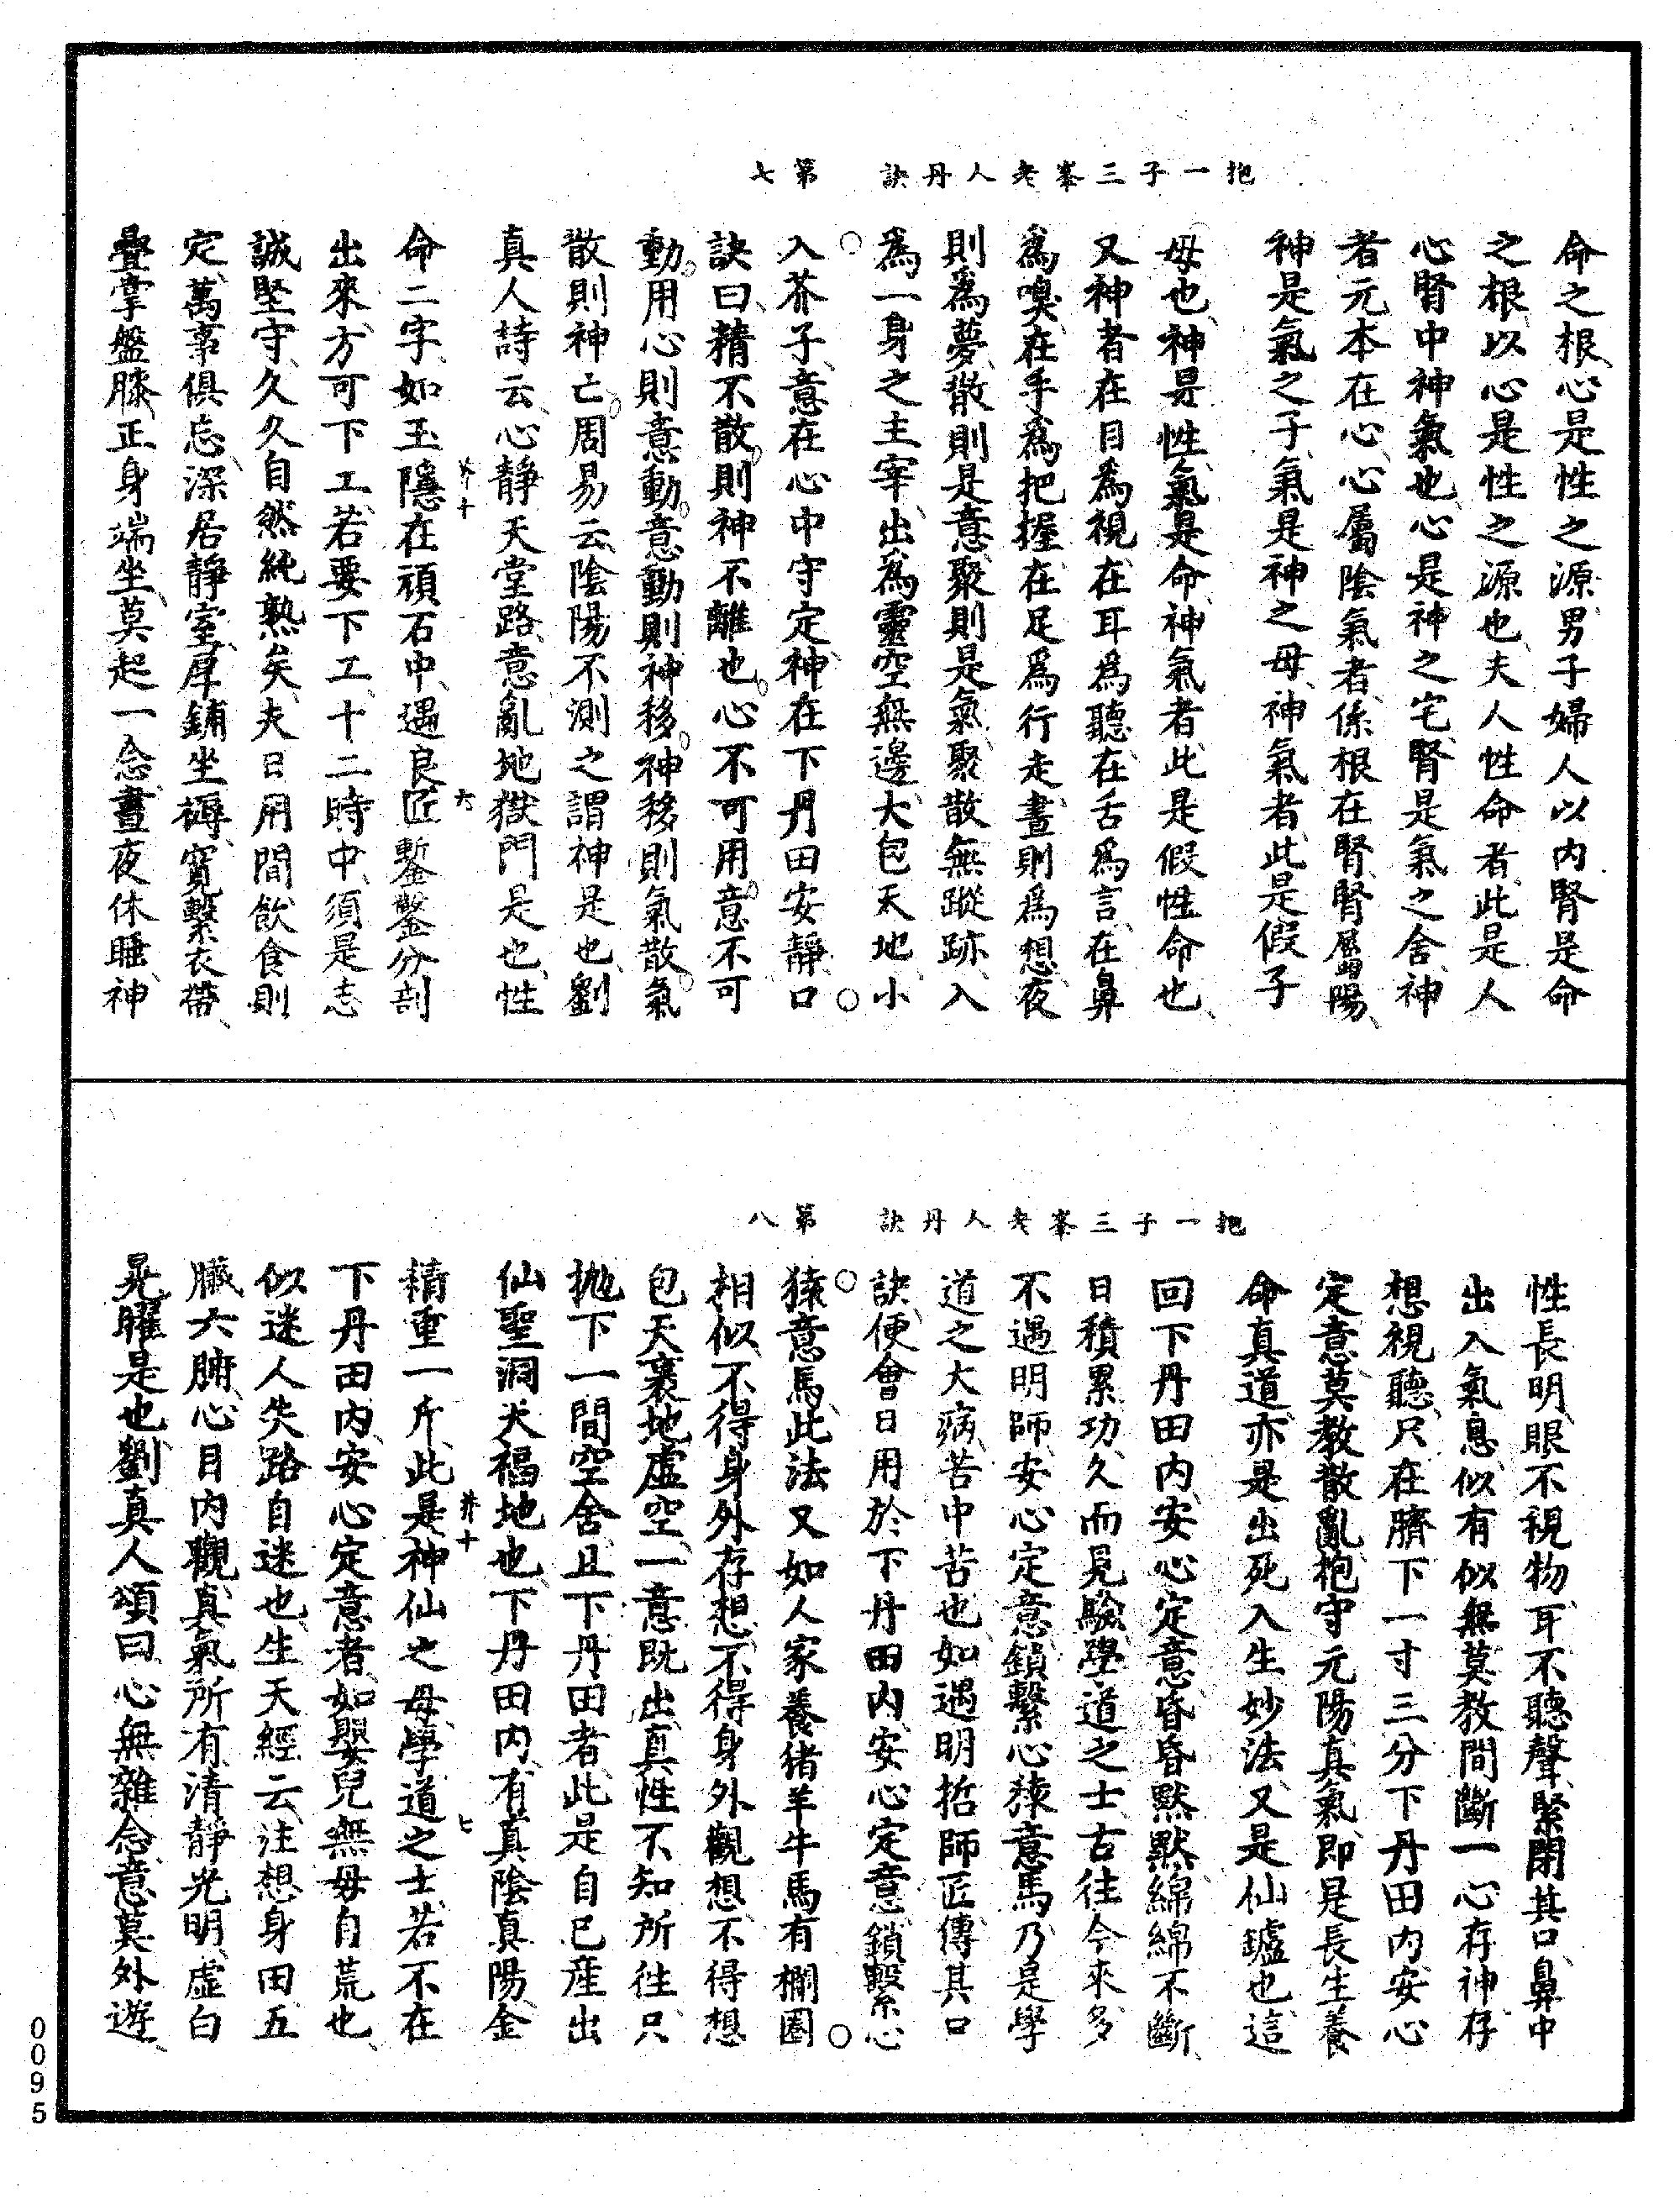 抱一子三峯老人丹訣　第七
命之根心是性之源男子婦人以内腎是命
之根以心是性之源也夫人性命者此是人
心腎中神氣也心是神之宅腎是氣之舍神
者元本在心心屬陰氣者係根在腎腎屬陽
神是氣之子氣是神之母神氣者此是假子
母也神是性氣是命神氣者此是假性命也
又神者在目爲視在耳爲聽在舌爲言在鼻
爲嗅在手爲把握在足爲行走晝則爲想夜
則爲夢散則是意聚則是氣聚散無蹤跡入
爲一身之主宰出爲靈空無邊大包天地小
入芥子意在心中守定神在下丹田安靜口
訣曰精不散則神不離也心不可用意不可
動用心則意動意動則神移神移則氣散氣
散則神亡周易云陰陽不測之謂神是也劉
真人詩云心靜天堂路意亂地獄門是也性
命二字如玉隱在頑石中遇良匠鏨鑿分剖
芥十　六
出來方可下工若要下工十二時中須是志
誠堅守久久自然純熟矣夫日用間飲食則
定萬事俱忘深居靜室厚鋪坐褥寬繫衣帶
疊掌盤膝正身端坐莫起一念晝夜休睡神
抱一子三峯老人丹訣　第八
性長明眼不視物耳不聽聲緊閉其口鼻中
出入氣息似有似無莫教間斷一心存神存
想視聽只在臍下一寸三分下丹田内安心
定意莫教散亂抱守元陽真氣即是長生養
命真道亦是出死入生妙法又是仙壚也這
回下丹田内安心定意昏昏默默綿綿不斷
日積累功久而見驗學道之士古往今來多
不遇明師安心定意鎖繫心猿意馬乃是學
道之大病苦中苦也如遇明哲師匠傳其口
訣便會日用於下丹田内安心定意鎖繫心
猿意馬此法又如人家養猪羊牛馬有欄圈
相似不得身外存想不得身外觀想不得想
包天裹地虛空一意旣出真性不知所往只
抛下一間空舍且下丹田者此是自己産出
仙聖洞天福地也下丹田内有真陰真陽金
精重一斤此是神仙之母學道之士若不在
芥十　七
下丹田内安心定意者如嬰兒無母自荒也
似迷人失路自迷也生天經云注想身田五
臟六腑心目内觀真氣所有清靜光明虛白
晃曜是也劉真人頌曰心無雜念意莫外遊
0095